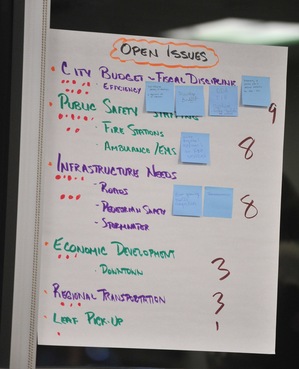 OPEN ISSUES
CITY BUDGET - FISCAL DISCIPLINE
- EFFICIENCY
9
PUBLIC SAFETY
- FIRE STATIONS
- AMBULANCE/EMS
8
INFRASTRUCTURE NEEDS
- ROADS
- PEDESTRIAN SAFETY
- STORMWATER
8
ECONOMIC DEVELOPMENT
- DOWNTOWN
3
REGIONAL TRANSPORTATION
3
LEAF PICK-UP
1